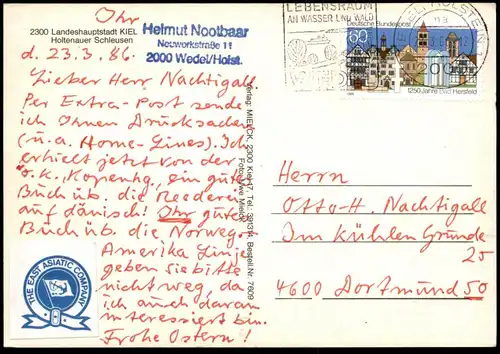 Ihr
2300 Landeshauptstadt KIEL
Holtenauer Schleusen
Helmut Nootbaar
Neuwerkstraße 11
2000 Wedel/Holst.
d. 23.3.86.
Lieber Herr Nachtigall.
Per Extra-Post sende
ich Ihnen Drucksachen
(u.a. Home-Lines). Ich
erhielt jetzt von der
ö.K., Kopenhg, ein gutes
Buch üb. die Reederei
auf dänisch! Ihr gutes
Buch üb. die Norweg.
Amerika Linje
geben sie bitte
nicht weg, da
ich auch daran
interessiert bin.
Frohe Ostern!
THE EAST ASIATIC COMPANY
Verlag: MIELCK, 2300 Kiel 17, Tel. 391314, Bestell.Nr. 7609
Foto: Uwe Mielck
LEBENSRAUM
AN WASSER UND WALD
WEDEL, HOLSTEIN
Deutsche Bundespost
60
1250 Jahre Bad Hersfeld
Herrn
Otto-H. Nachtigall
Im Kühlen Grunde
20
4600 Dortmund 50